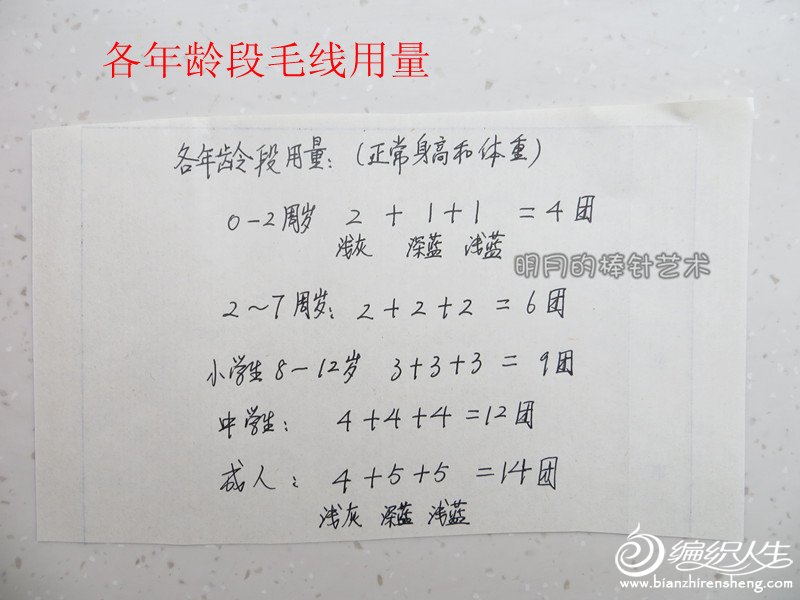 各年龄段毛线用量
各年龄段用量：（正常身高和体重）
0-2周岁 2 + 1+1 =4团
浅灰 深蓝 浅蓝
明月的棒针艺术
2～7周岁：2+2+2 =6团
小学生8-12岁 3+3+3 = 9团
中学生： 4+4+4=12团
成人： 4+5+5 =14团
浅灰 深蓝 浅蓝
编织人生
www.bianzhirensheng.com